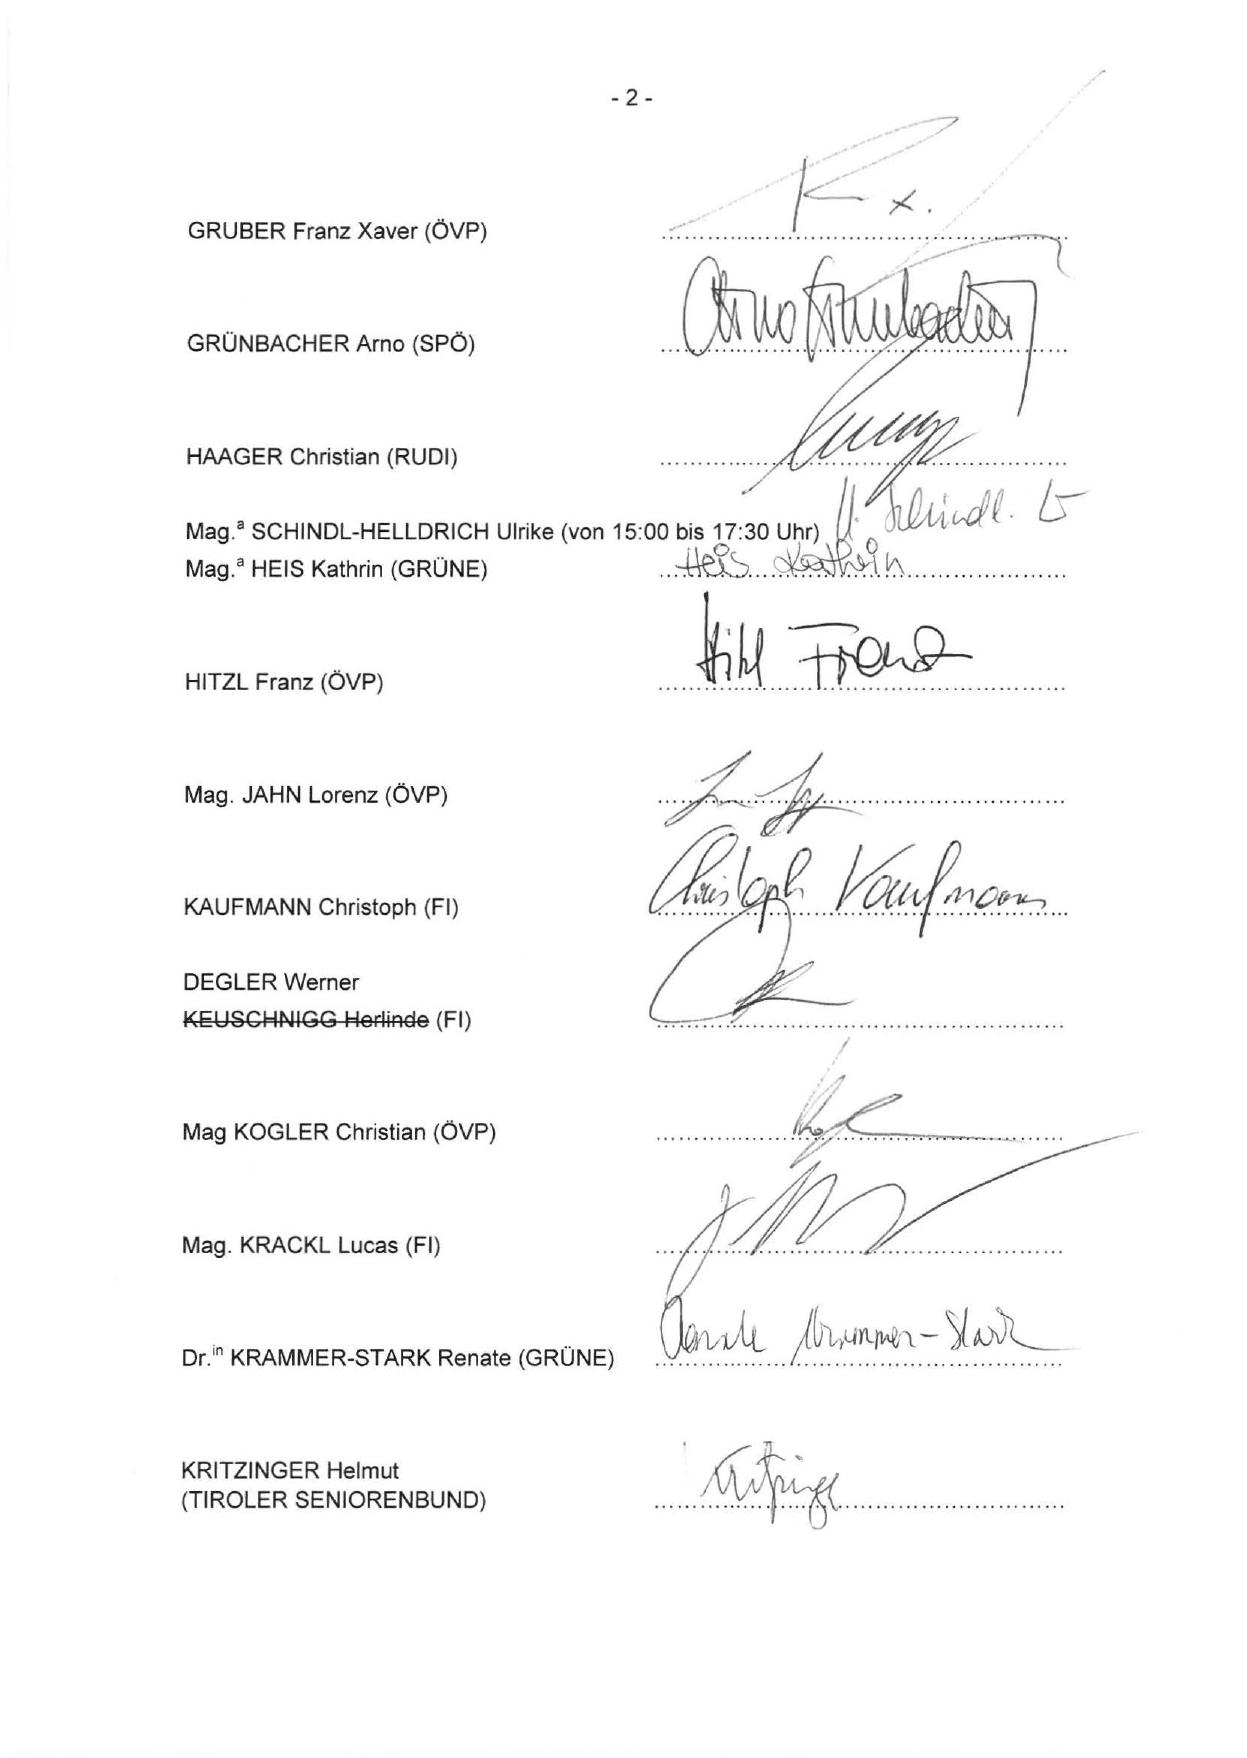 - 2 -
GRUBER Franz Xaver (ÖVP)
GRÜNBACHER Arno (SPÖ) Arno Grünbacher
HAAGER Christian (RUDI)
Mag.ª SCHINDL-HELLDRICH Ulrike (von 15:00 bis 17:30 Uhr) U. Schindl.
Mag.ª HEIS Kathrin (GRÜNE) Heis Kathrin
HITZL Franz (ÖVP) Hitzl Franz
Mag. JAHN Lorenz (ÖVP)
KAUFMANN Christoph (FI) Christoph Kaufmann
DEGLER Werner
KEUSCHNIGG Herlinde (FI)
Mag KOGLER Christian (ÖVP)
Mag. KRACKL Lucas (FI)
Dr.ⁱⁿ KRAMMER-STARK Renate (GRÜNE) Renate Krammer-Stark
KRITZINGER Helmut
(TIROLER SENIORENBUND) Kritzinger